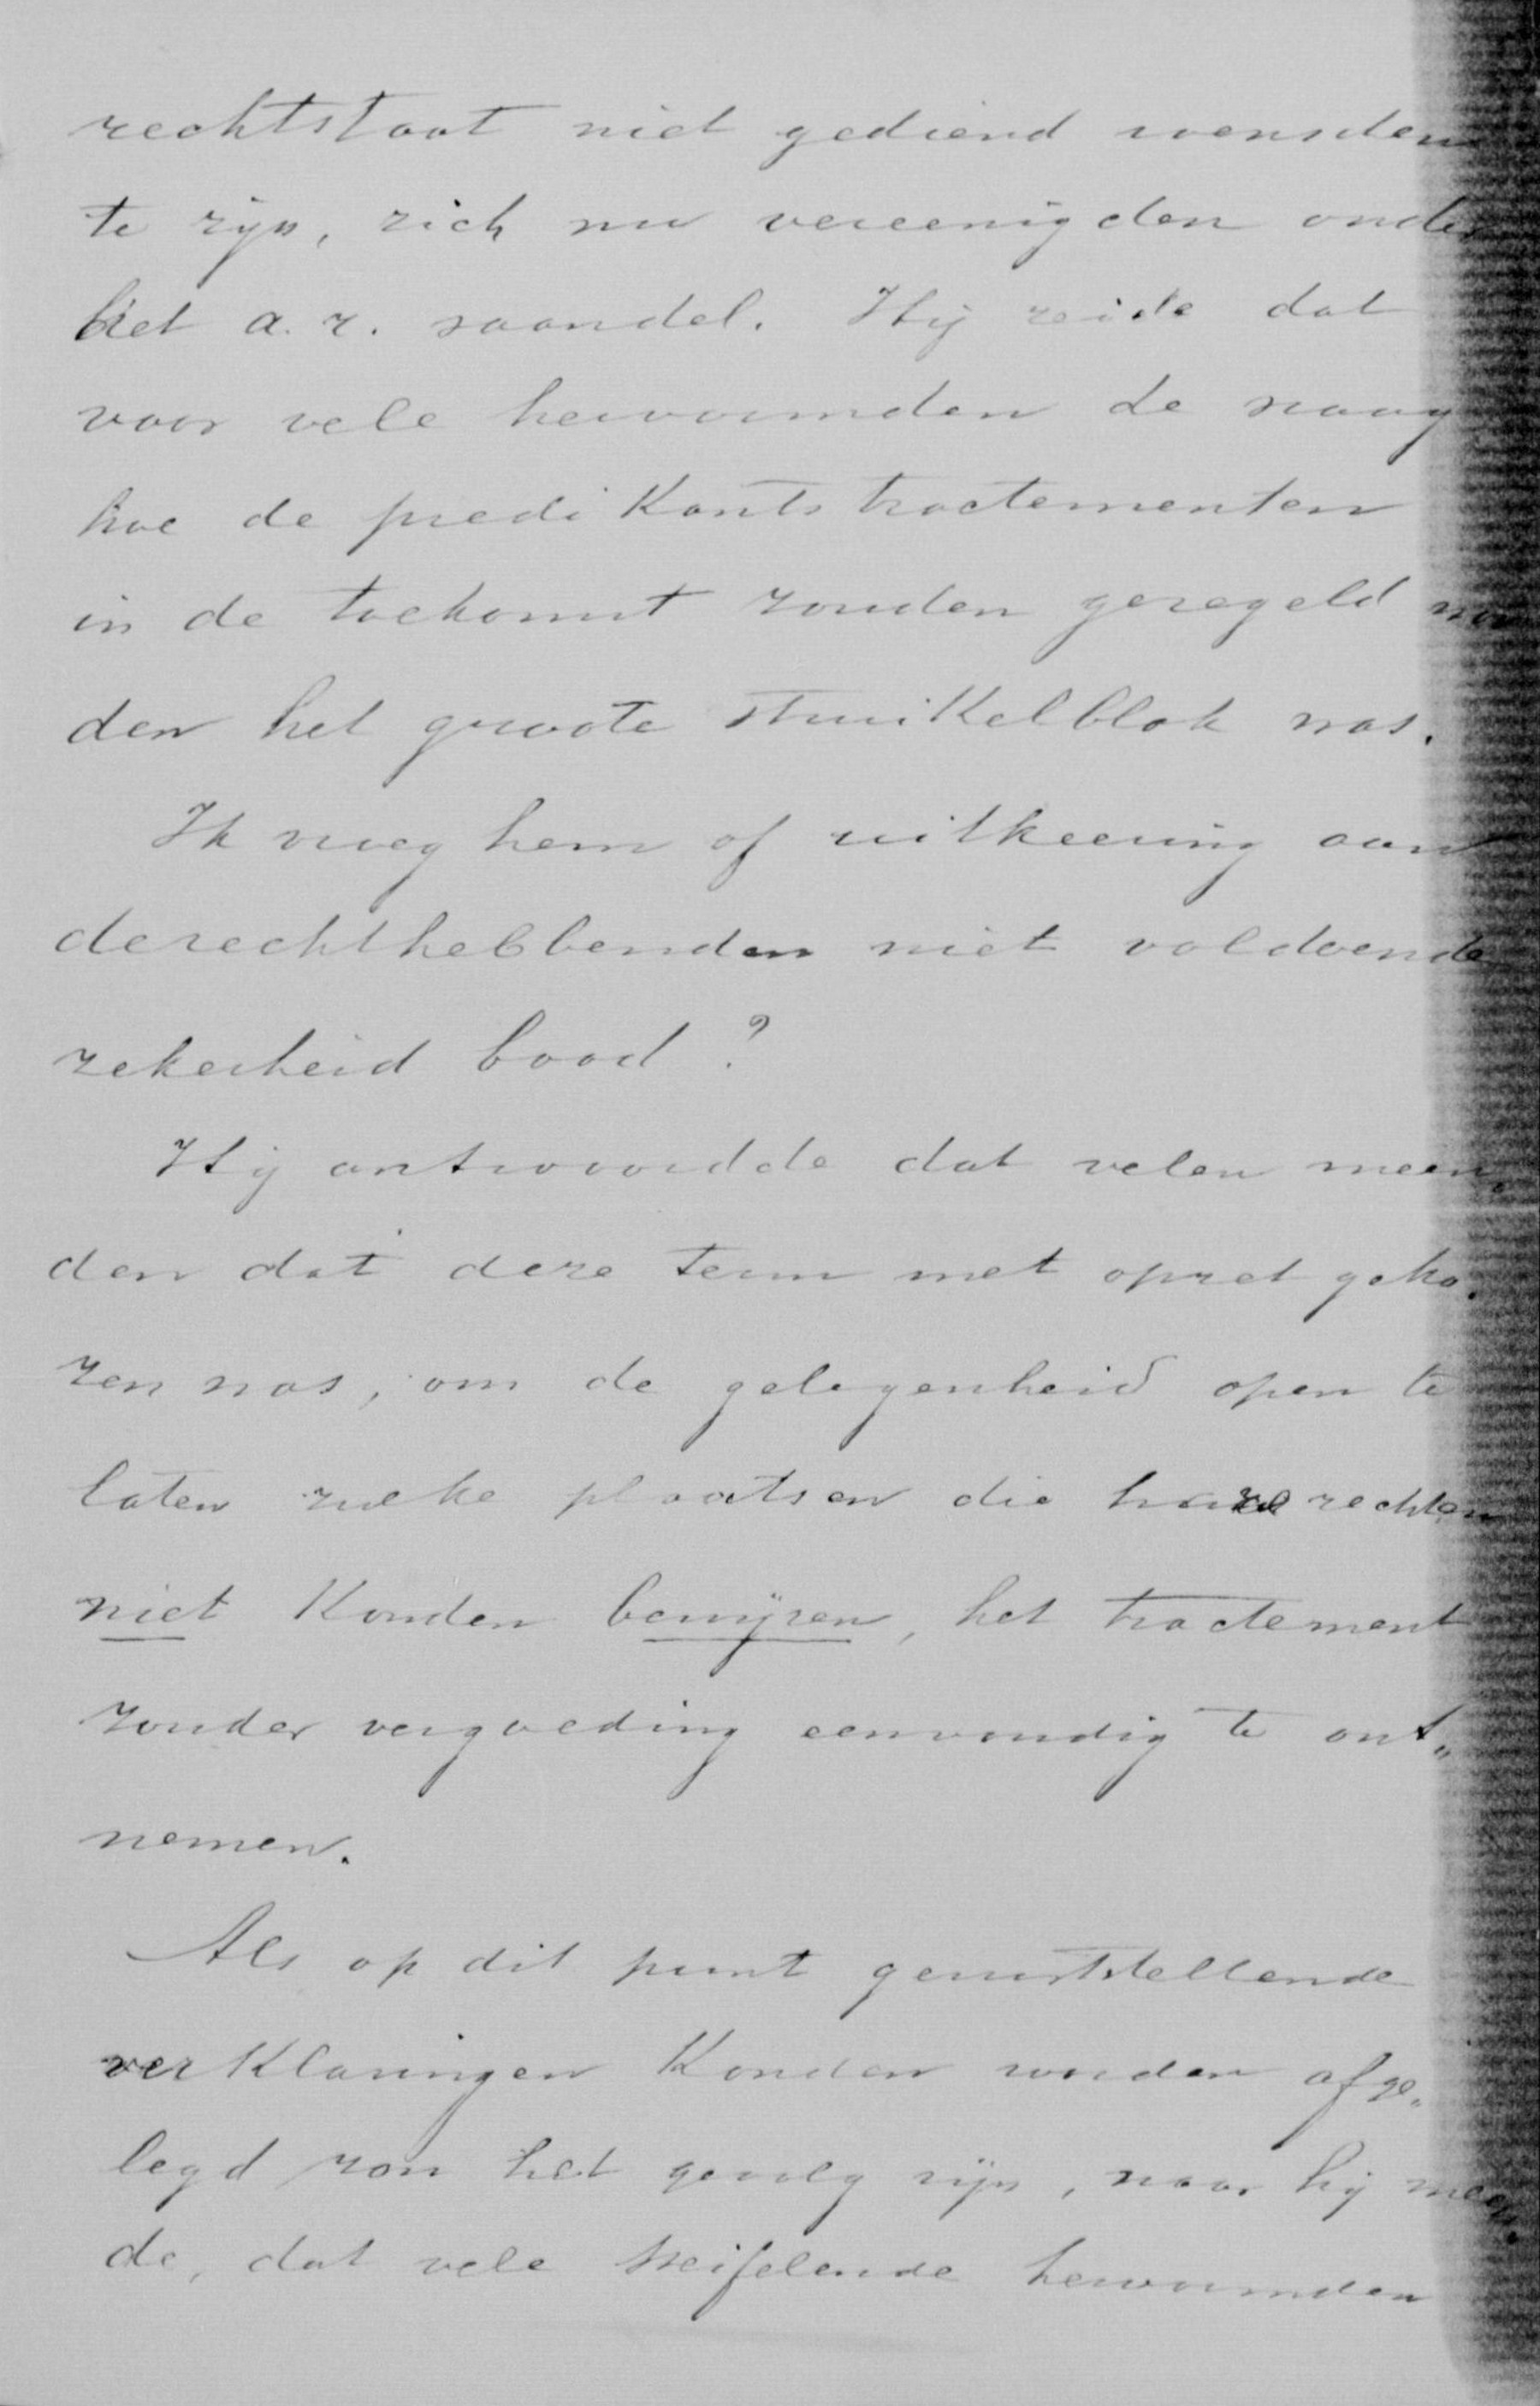 rechtstaat niet gediend wenschen
te zijn, zich nu vereenigden onder
het a.r. vaandel. Hij zeide dat
voor vele hervormden de vraag
hoe de predikantstractementen
in de toekomst zouden geregeld wor
den het groote struikelblok was.
Ik vroeg hem of uitkeering aan
de rechthebbenden niet voldoende
zekerheid bood?
Hij antwoordde dat velen meen„
den dat deze term met opzet geko„
zen was, om de gelegenheid open te
laten zulke plaatsen die hare rechten
niet konden bewijzen, het tractement
zonder vergoeding eenvoudig te ont„
nemen.
Als op dit punt geruststellende
verklaringen konden worden afge„
legd zou het gevolg zijn, naar hij meen„
de, dat vele weifelende hervormden